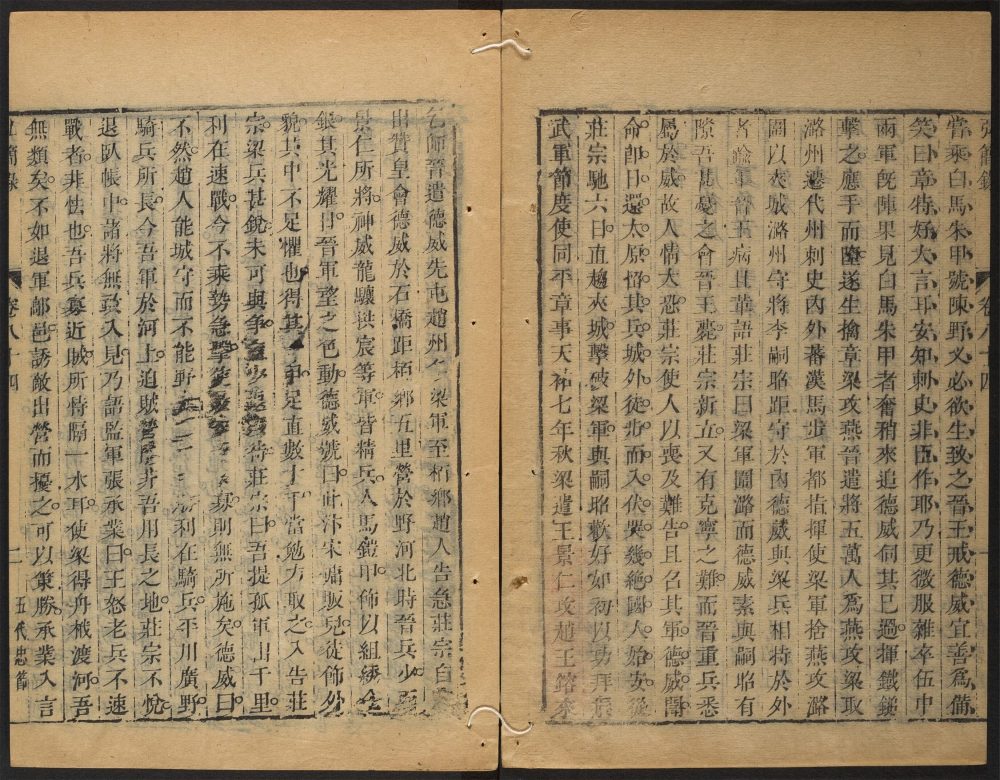 弘簡錄 卷八十四 十
嘗乘白馬朱甲號陳野义必欲生致之晉王戒德威宜善爲備
笑曰章特好大言耳安知刺史非臣作耶乃更微服雜卒伍中
兩軍既陣果見白馬朱甲者奮矟來追德威伺其已過揮鐵鎚
擊之應手而墮遂生擒章梁攻燕晉遣將五萬人爲燕攻梁取
潞州遷代州刺史內外蕃漢馬步軍都指揮使梁軍捨燕攻潞
圍以夾城潞州守將李嗣昭距守於內德威與梁兵相持於外
者踰年晉王病且革語莊宗曰梁軍圍潞而德威素與嗣昭有
隙吾甚憂之會晉王薨莊宗新立又有克寧之難而晉重兵悉
屬於威故人情大恐莊宗使人以喪及難告且召其軍德威聞
命即日還太原留其兵城外徒步而入伏哭幾絕國人始安從
莊宗馳六日直趨夾城擊破梁軍與嗣昭歡好如初以功拜振
武軍節度使同平章事天祐七年秋梁遣王景仁攻趙王鎔來
乞師晉遣德威先屯趙州 梁軍至栢鄉趙人告急莊宗自
出贊皇會德威於石橋距栢鄉五里營於野河北時晉兵少而
景仁所將神威龍驤拱宸等軍皆精兵人馬鎧甲飾以組繡金
銀其光耀日晉軍望之色動德威號曰此汴宋傭販兒徒飾外
貌其中不足懼也得其 足直數十千當勉力取之入告莊
宗梁兵甚銳未可與爭 待莊宗曰吾提孤軍出千里
利在速戰今不乘勢急擊使 寡則無所施矣德威曰
不然趙人能城守而不能野 利在騎兵平川廣野
騎兵所長今吾軍於河上迫賊營門非吾用長之地莊宗不悅
退臥帳中諸將無敢入見乃語監軍張承業曰王怒老兵不速
戰者非怯也吾兵寡近賊所恃隔一水耳使梁得舟栰渡河吾
無類矣不如退軍鄗邑誘敵出營而擾之可以策勝承業入言
弘簡錄 卷八十四 十一 五代忠節